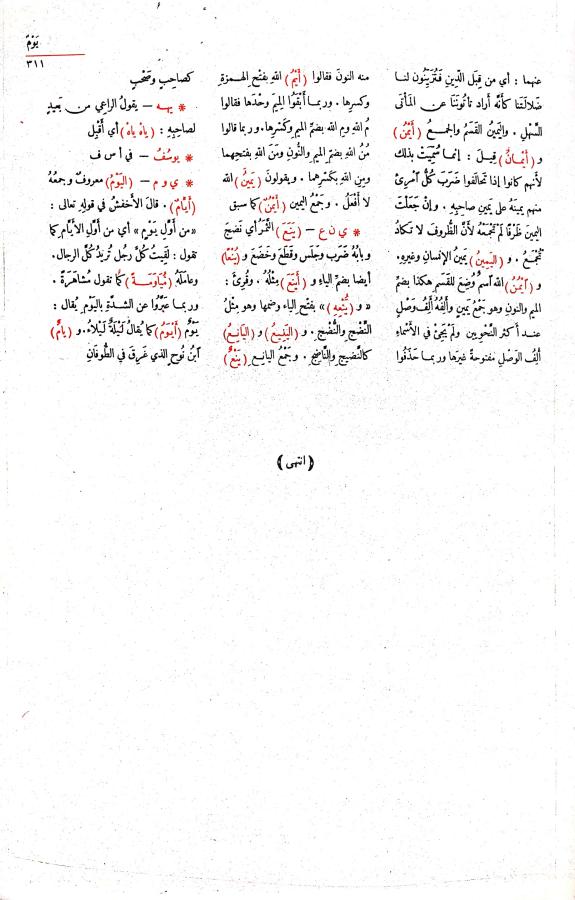 يَوْمٌ
٣١١
عنهما : أي من قِبَل الدِّين فَتُزَيِّنُون لنا
ضَلَالَتَنا كأنَّه أراد تأتُونَنَا عن المَأْتَى
السَّهْلِ . واليَمِينُ القَسَمُ والجمعُ (أَيْمُنٌ)
و (أَيْمَانٌ) قيلَ : إنما سُمِّيَتْ بذلك
لأنهم كانوا إذا تحالفوا ضَرَبَ كُلُّ آمرئ
منهم يمينهُ على يمينِ صاحبهِ . وإنْ جَعَلْتَ
اليمين ظَرْفًا لَمْ تَجْمَعْهُ لأنَّ الظُّروفَ لا تكادُ
تُجْمَعُ . و (اليَمِينُ) يَمينُ الإنسانِ وغيرهِ .
و (آيْمُنُ) اللهِ آسمٌ وُضِعَ للقَسَمِ هكذا بضمِّ
الميم والنون وهو جَمْعُ يَمينٍ وألِفُهُ ألِفُ وَصْلٍ
عند أكثر النَّحْوِيِّين ولم يَجِئْ في الأَسْمَاءِ
ألِفُ الوَصْلِ مفتوحةً غيرَها وربما حَذَفُوا
منه النونَ فقالوا (أَيْمُ) اللهِ بفتْح الهمزةِ
وكسرِها . وربما أَبْقَوُا المِيمَ وحْدَها فقالوا
مُ اللهِ ومِ اللهِ بضمِّ الميم وكَسْرِها. وربما قالوا
مُنُ اللهِ بضمِّ الميمِ والنُّونِ ومَنَ اللهِ بفتحِهما
ومِنِ اللهِ بكَسْرِهما . ويقولون (يَمِينُ) اللهِ
لا أَفْعَلُ . وجَمْعُ اليمين (أَيْمُنٌ) كما سبق
* ي ن ع — (يَنَعَ) الثَّمَرُ أي نَضِجَ
وبابُهُ ضَرَب وجَلَس وقَطَع وخَضَع و (يُنْعًا)
أيضا بضمِّ الياءِ و (أَيْنَعَ) مِثْلُهُ . وقُرِئَ :
« و (يَنْعِهِ) » بفتح الياء وضمِّها وهو مِثْلُ
النَّضْجِ والنُّضْجِ . و (اليَنِيعُ) و (اليَانِعُ)
كالنَّضِيجِ والنَّاضِجِ . وجَمْعُ اليَانِعِ (يَنْعٌ)
كصاحِبٍ وصَحْبٍ
* يهه — يقولُ الراعِي من بَعِيدٍ
لصاحِبِهِ : (ياهْ ياهْ) أي أَقْبِل
* يوسُفُ — في أ س ف
* ي و م — (اليَوْمُ) معروفٌ وجمعُهُ
(أَيَّامٌ) . قالَ الأخفشُ في قولهِ تعالى :
«من أَوَّلِ يَوْمٍ » أي من أَوَّلِ الأيَّامِ كما
تقول : لَقِيتُ كُلَّ رجلٍ تُرِيدُ كُلَّ الرجال.
وعاملَهُ (مُيَاوَمَـةً) كما تقول مُشاهَرَةً .
وربما عَبَّرُوا عن الشدَّةِ باليَوْمِ يُقالُ :
يَوْمٌ (أَيْوَمُ) كما يُقالُ لَيْلَةٌ لَيْلَاءُ. و (يامٌ)
آبنُ نُوحٍ الذي غَرِقَ في الطُّوفان
(انتهى)